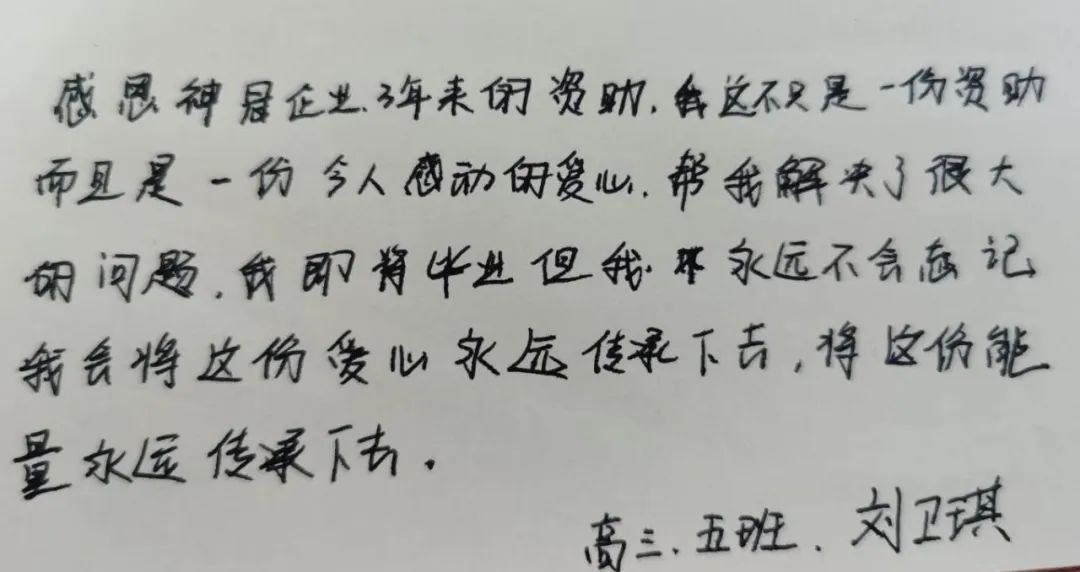 感恩神冠企业、3年来的资助,我这不只是一份资助
而且是一份令人感动的爱心,帮我解决了很大
的问题,我即将毕业但我永远不会忘记
我会将这份爱心永远传承下去,将这份能
量永远传承下去.
高三、五班. 刘卫琪